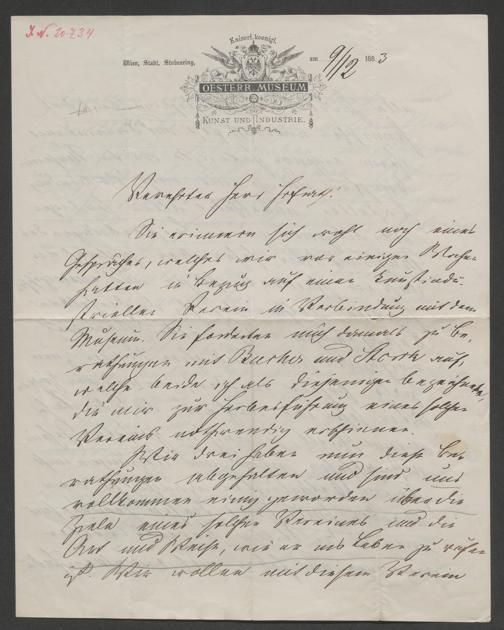 I.N. 207.34
Kaiserl. koenigl.
Wien, Stadt, Stubenring, am 9/12 1883
OESTERR. MUSEUM
KUNST UND INDUSTRIE.
Verehrter Herr Hofrath!
Sie erinnern sich wohl noch eines
Gespräches, welches wir vor einigen Wochen
hatten in Bezug auf einen kunstindu-
striellen Verein in Verbindung mit dem
Museum. Sie forderten mich damals zu Be-
rathungen mit Bucher und Storck auf,
welche beide ich als diejenigen bezeichnete,
die mir zur Herbeiführung eines solchen
Vereins nothwendig erschienen.
Wir drei haben nun diese Be-
rathungen abgehalten und sind uns
vollkommen einig geworden über die
Ziele eines solchen Vereines und die
Art und Weise, wie er ins Leben zu rufen
ist. Wir wollen mit diesem Verein